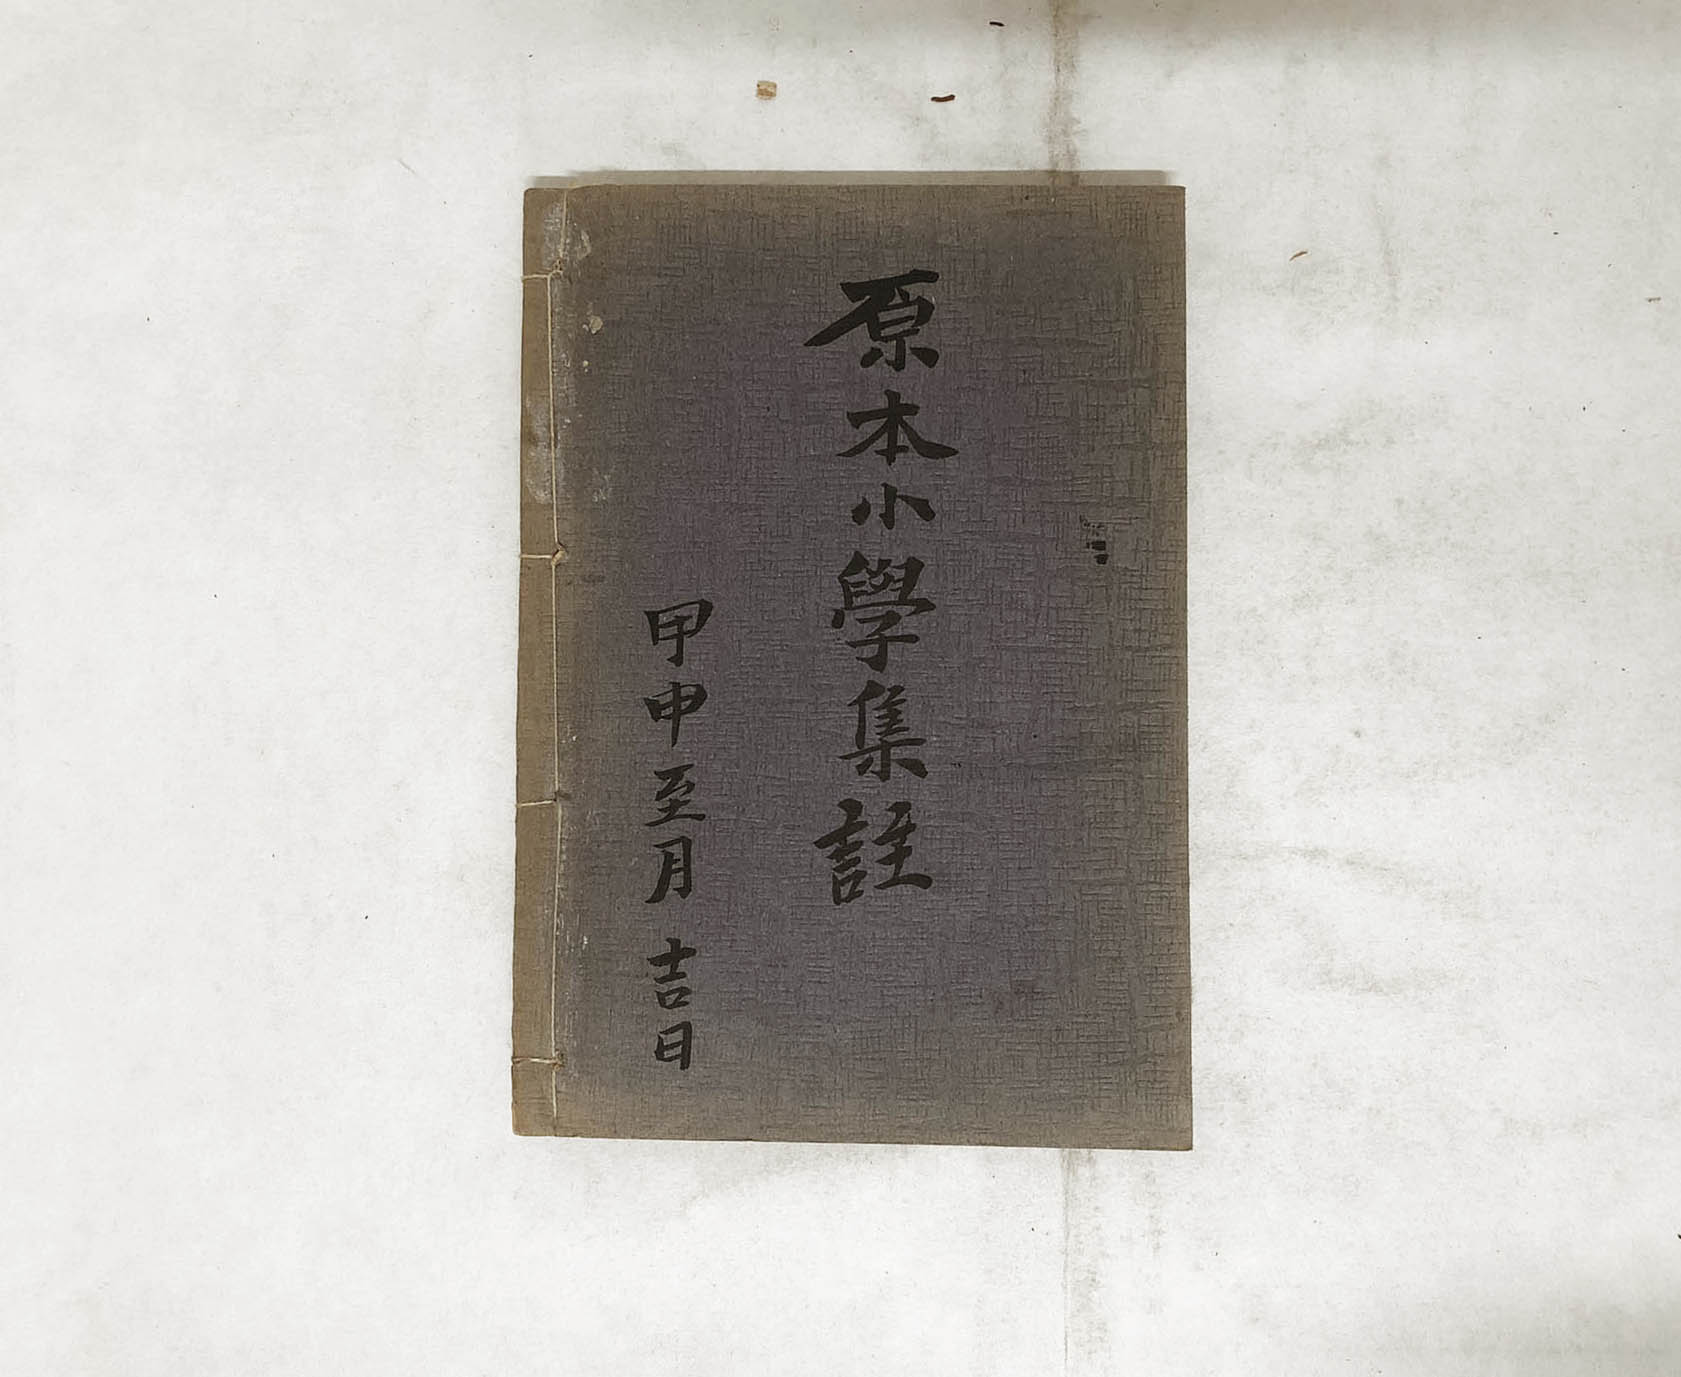 原本小學集註
甲申至月 吉日